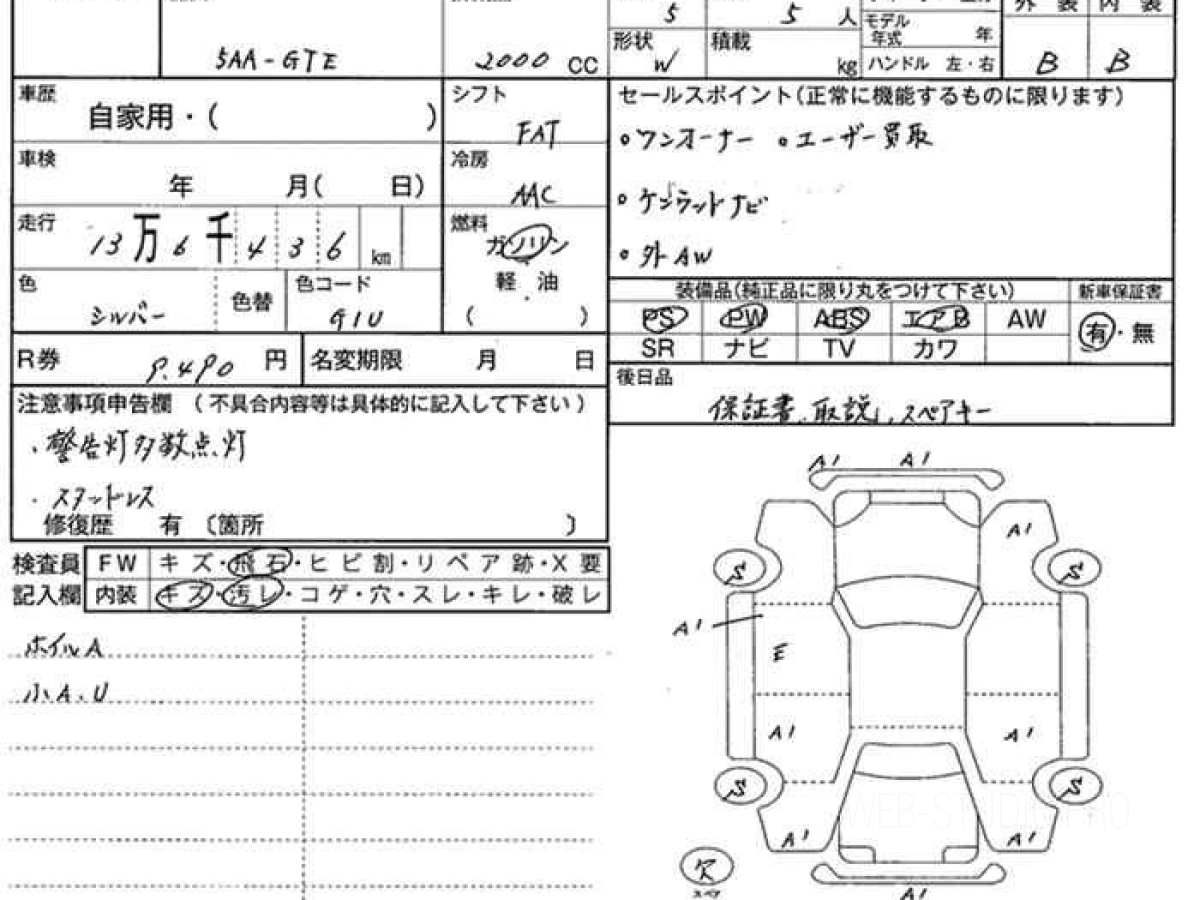 5AA-GTE
2000 CC
5
5 人
モデル年式 年
外装 内装
形状 W
積載 kg
ハンドル 左・右
B B
車歴 自家用・( )
シフト FAT
セールスポイント(正常に機能するものに限ります)
○ワンオーナー ○ユーザー買取
車検 年 月( 日)
冷房 AAC
○ケンウッドナビ
走行 13万6千436 km
燃料 ガソリン
軽油
( )
○外AW
色 シルバー
色替
色コード G1U
装備品(純正品に限り丸をつけて下さい) 新車保証書
PS PW ABS エアB AW 有・無
SR ナビ TV カワ
R券 9,490 円
名変期限 月 日
後日品
保証書、取説、スペアキー
注意事項申告欄 (不具合内容等は具体的に記入して下さい)
・警告灯多数点灯
・スタッドレス
修復歴 有 〔箇所 〕
検査員 FW キズ・飛石・ヒビ割・リペア跡・X要
記入欄 内装 キズ・汚レ・コゲ・穴・スレ・キレ・破レ
ホイルA
小A.U
A1 A1
A1
S S
A1
E
A1 A1
S S
WEB-STUDIO.PRO
A1 A1
スペア
A1